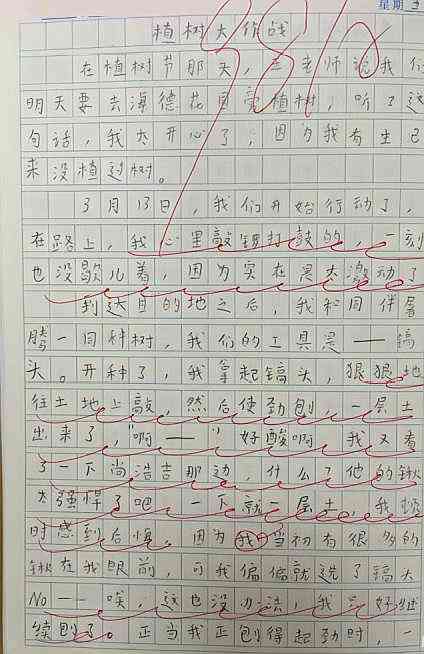 星期
植树大作战
在植树节那天，王老师说我们
明天要去海德花园植树，听了这
句话，我太开心了，因为我有生已
来没植过树。
3月13日，我们开始行动了，
在路上，我心里敲锣打鼓的，一刻
也没歇儿着，因为实在是太激动了
到达目的地之后，我和同伴
腾一同种树，我们的工具是——镐
头。开种了，我拿起镐头，狠狠地
往土地上敲，然后使劲刨，一层土
出来了，"啊——"好酸啊 我又看
了一下尚浩吉那边，什么？他的锹
太强悍了吧 一下就一层土，我顿
时感到后悔，因为我当初有很多的
锹在我眼前，可我偏偏就选了镐头
No——唉，这也没办法，我只好继
续刨了。正当我正刨得起劲时，一